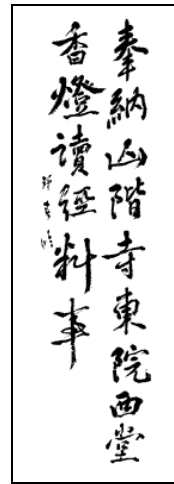 奉納山階寺東院西堂
香燈讀經料事